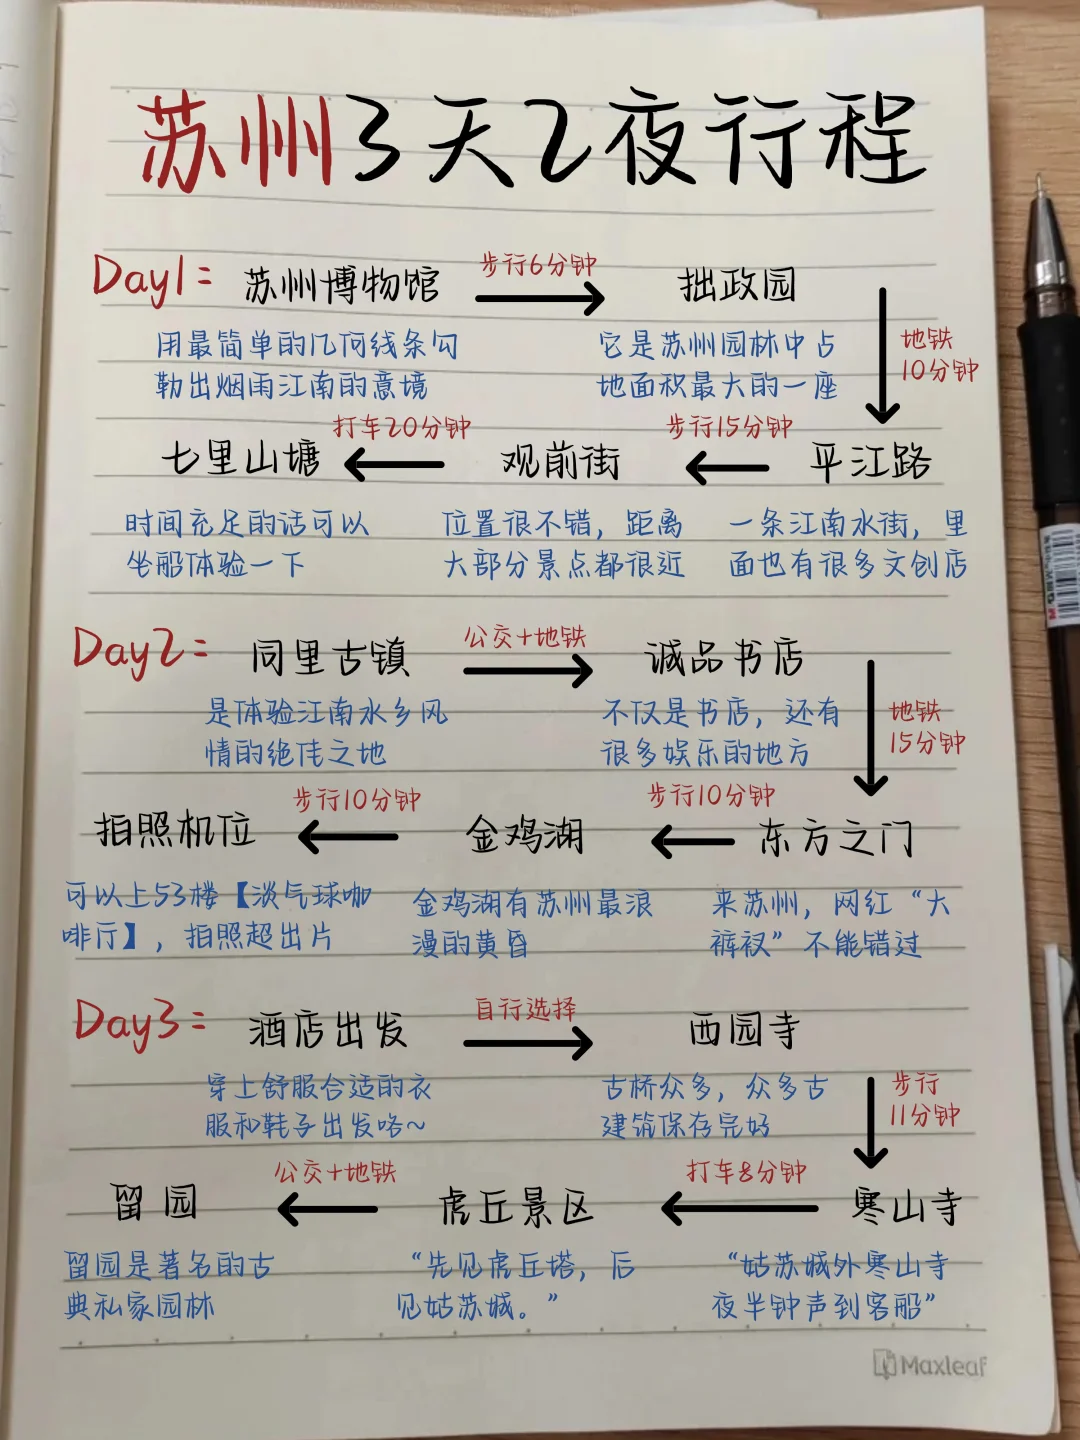 苏州3天2夜行程
Day1: 苏州博物馆 步行6分钟 拙政园
用最简单的几何线条勾
勒出烟雨江南的意境
它是苏州园林中占
地面积最大的一座
地铁
10分钟
七里山塘 打车20分钟 观前街 步行15分钟 平江路
时间充足的话可以
坐船体验一下
位置很不错，距离
大部分景点都很近
一条江南水街，里
面也有很多文创店
Day2: 同里古镇 公交+地铁 诚品书店
是体验江南水乡风
情的绝佳之地
不仅是书店，还有
很多娱乐的地方
地铁
15分钟
拍照机位 步行10分钟 金鸡湖 步行10分钟 东方之门
可以上53楼【淡气球咖
啡厅】，拍照超出片
金鸡湖有苏州最浪
漫的黄昏
来苏州，网红“大
裤衩”不能错过
Day3: 酒店出发 自行选择 西园寺
穿上舒服合适的衣
服和鞋子出发咯~
古桥众多，众多古
建筑保存完好
步行
11分钟
留园 公交+地铁 虎丘景区 打车8分钟 寒山寺
留园是著名的古
典私家园林
“先见虎丘塔，后
见姑苏城。”
“姑苏城外寒山寺
夜半钟声到客船”
Maxleaf
M&G